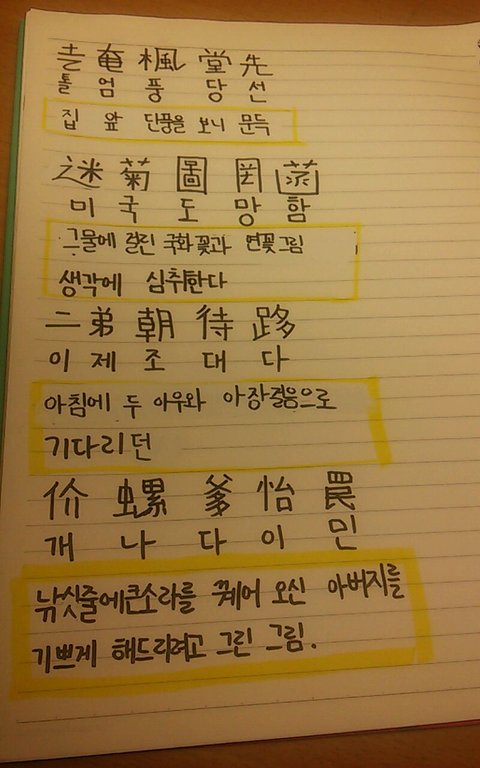 奄 楓 堂 先
톨 엄 풍 당 선
집 앞 단풍을 보니 문득
迷 菊 圖 罔 菡
미 국 도 망 함
그물에 걸린 국화꽃과 연꽃그림
생각에 심취한다
二 弟 朝 待 跢
이 제 조 대 다
아침에 두 아우와 아장걸음으로
기다리던
价 螺 爹 怡 罠
개 나 다 이 민
낚싯줄에큰소라를 꿰어 오신 아버지를
기쁘게 해드리려고 그린 그림.